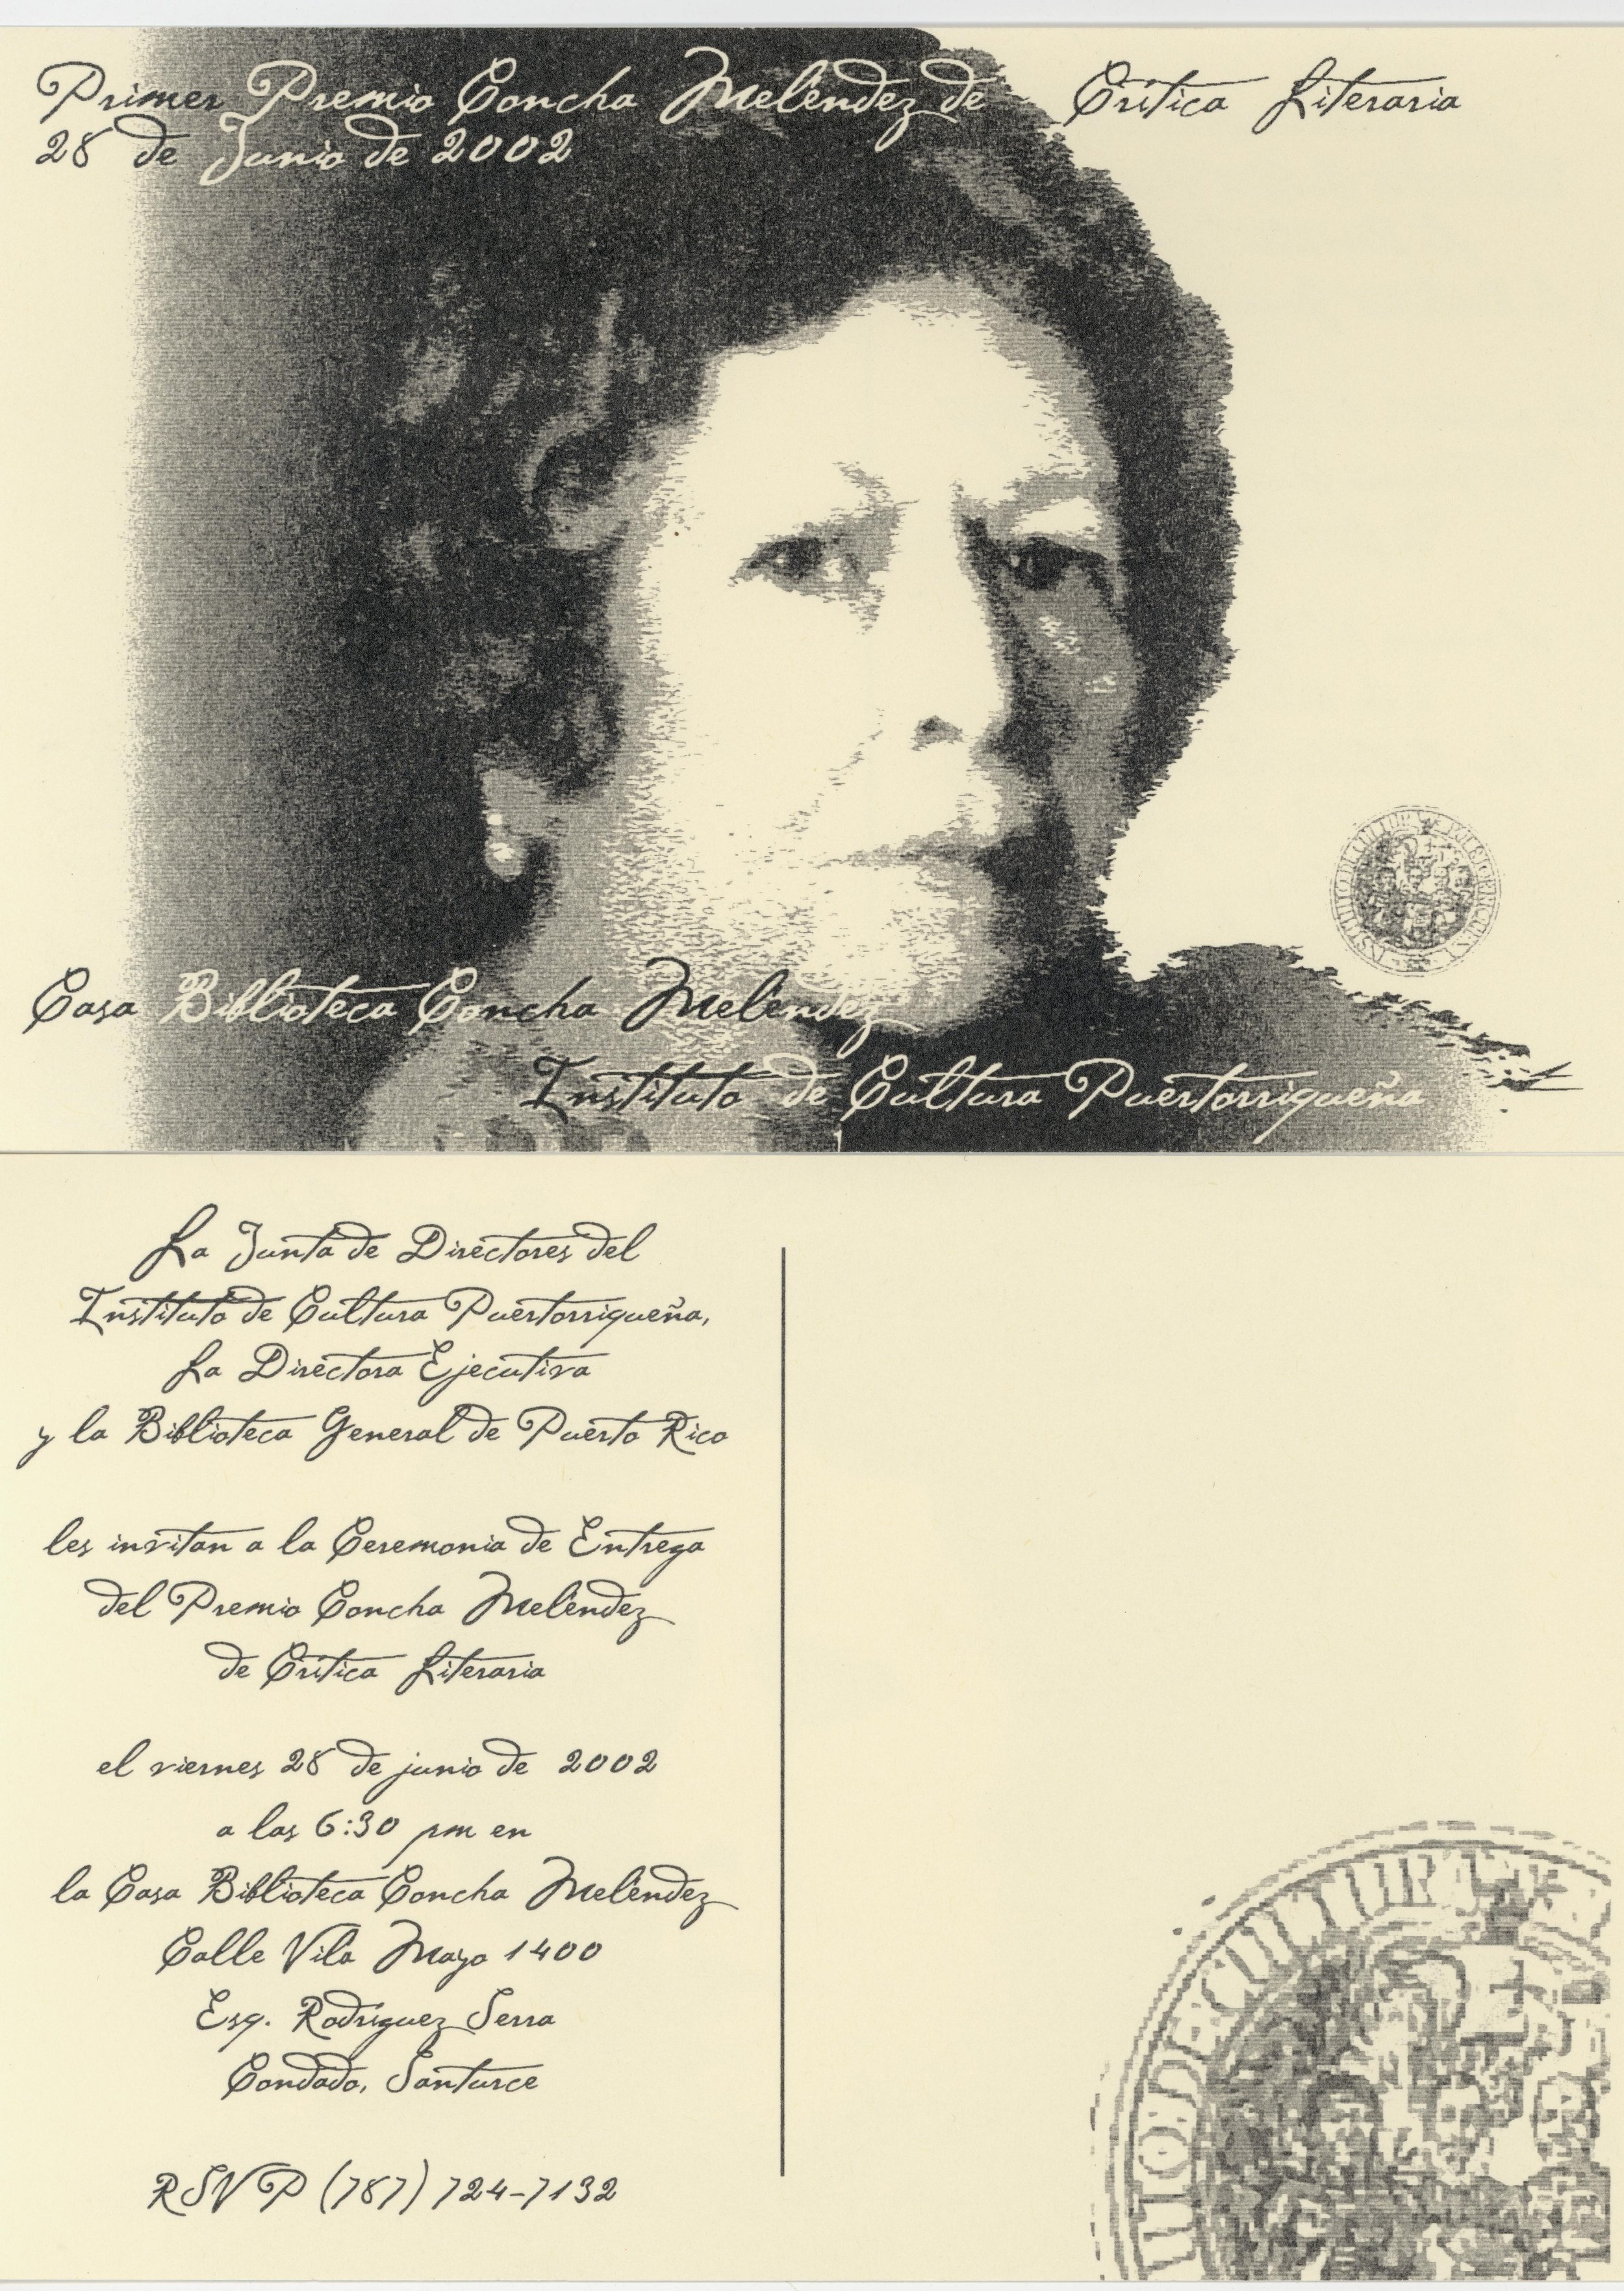 Primer Premio Concha Meléndez de Crítica Literaria
28 de Junio de 2002
Casa Biblioteca Concha Meléndez
Instituto de Cultura Puertorriqueña
La Junta de Directores del
Instituto de Cultura Puertorriqueña,
La Directora Ejecutiva
y la Biblioteca General de Puerto Rico
les invitan a la Ceremonia de Entrega
del Premio Concha Meléndez
de Crítica Literaria
el viernes 28 de junio de 2002
a las 6:30 pm en
la Casa Biblioteca Concha Meléndez
Calle Vila Mayo 1400
Esq. Rodríguez Serra
Condado, Santurce
RSVP (787) 724-7132